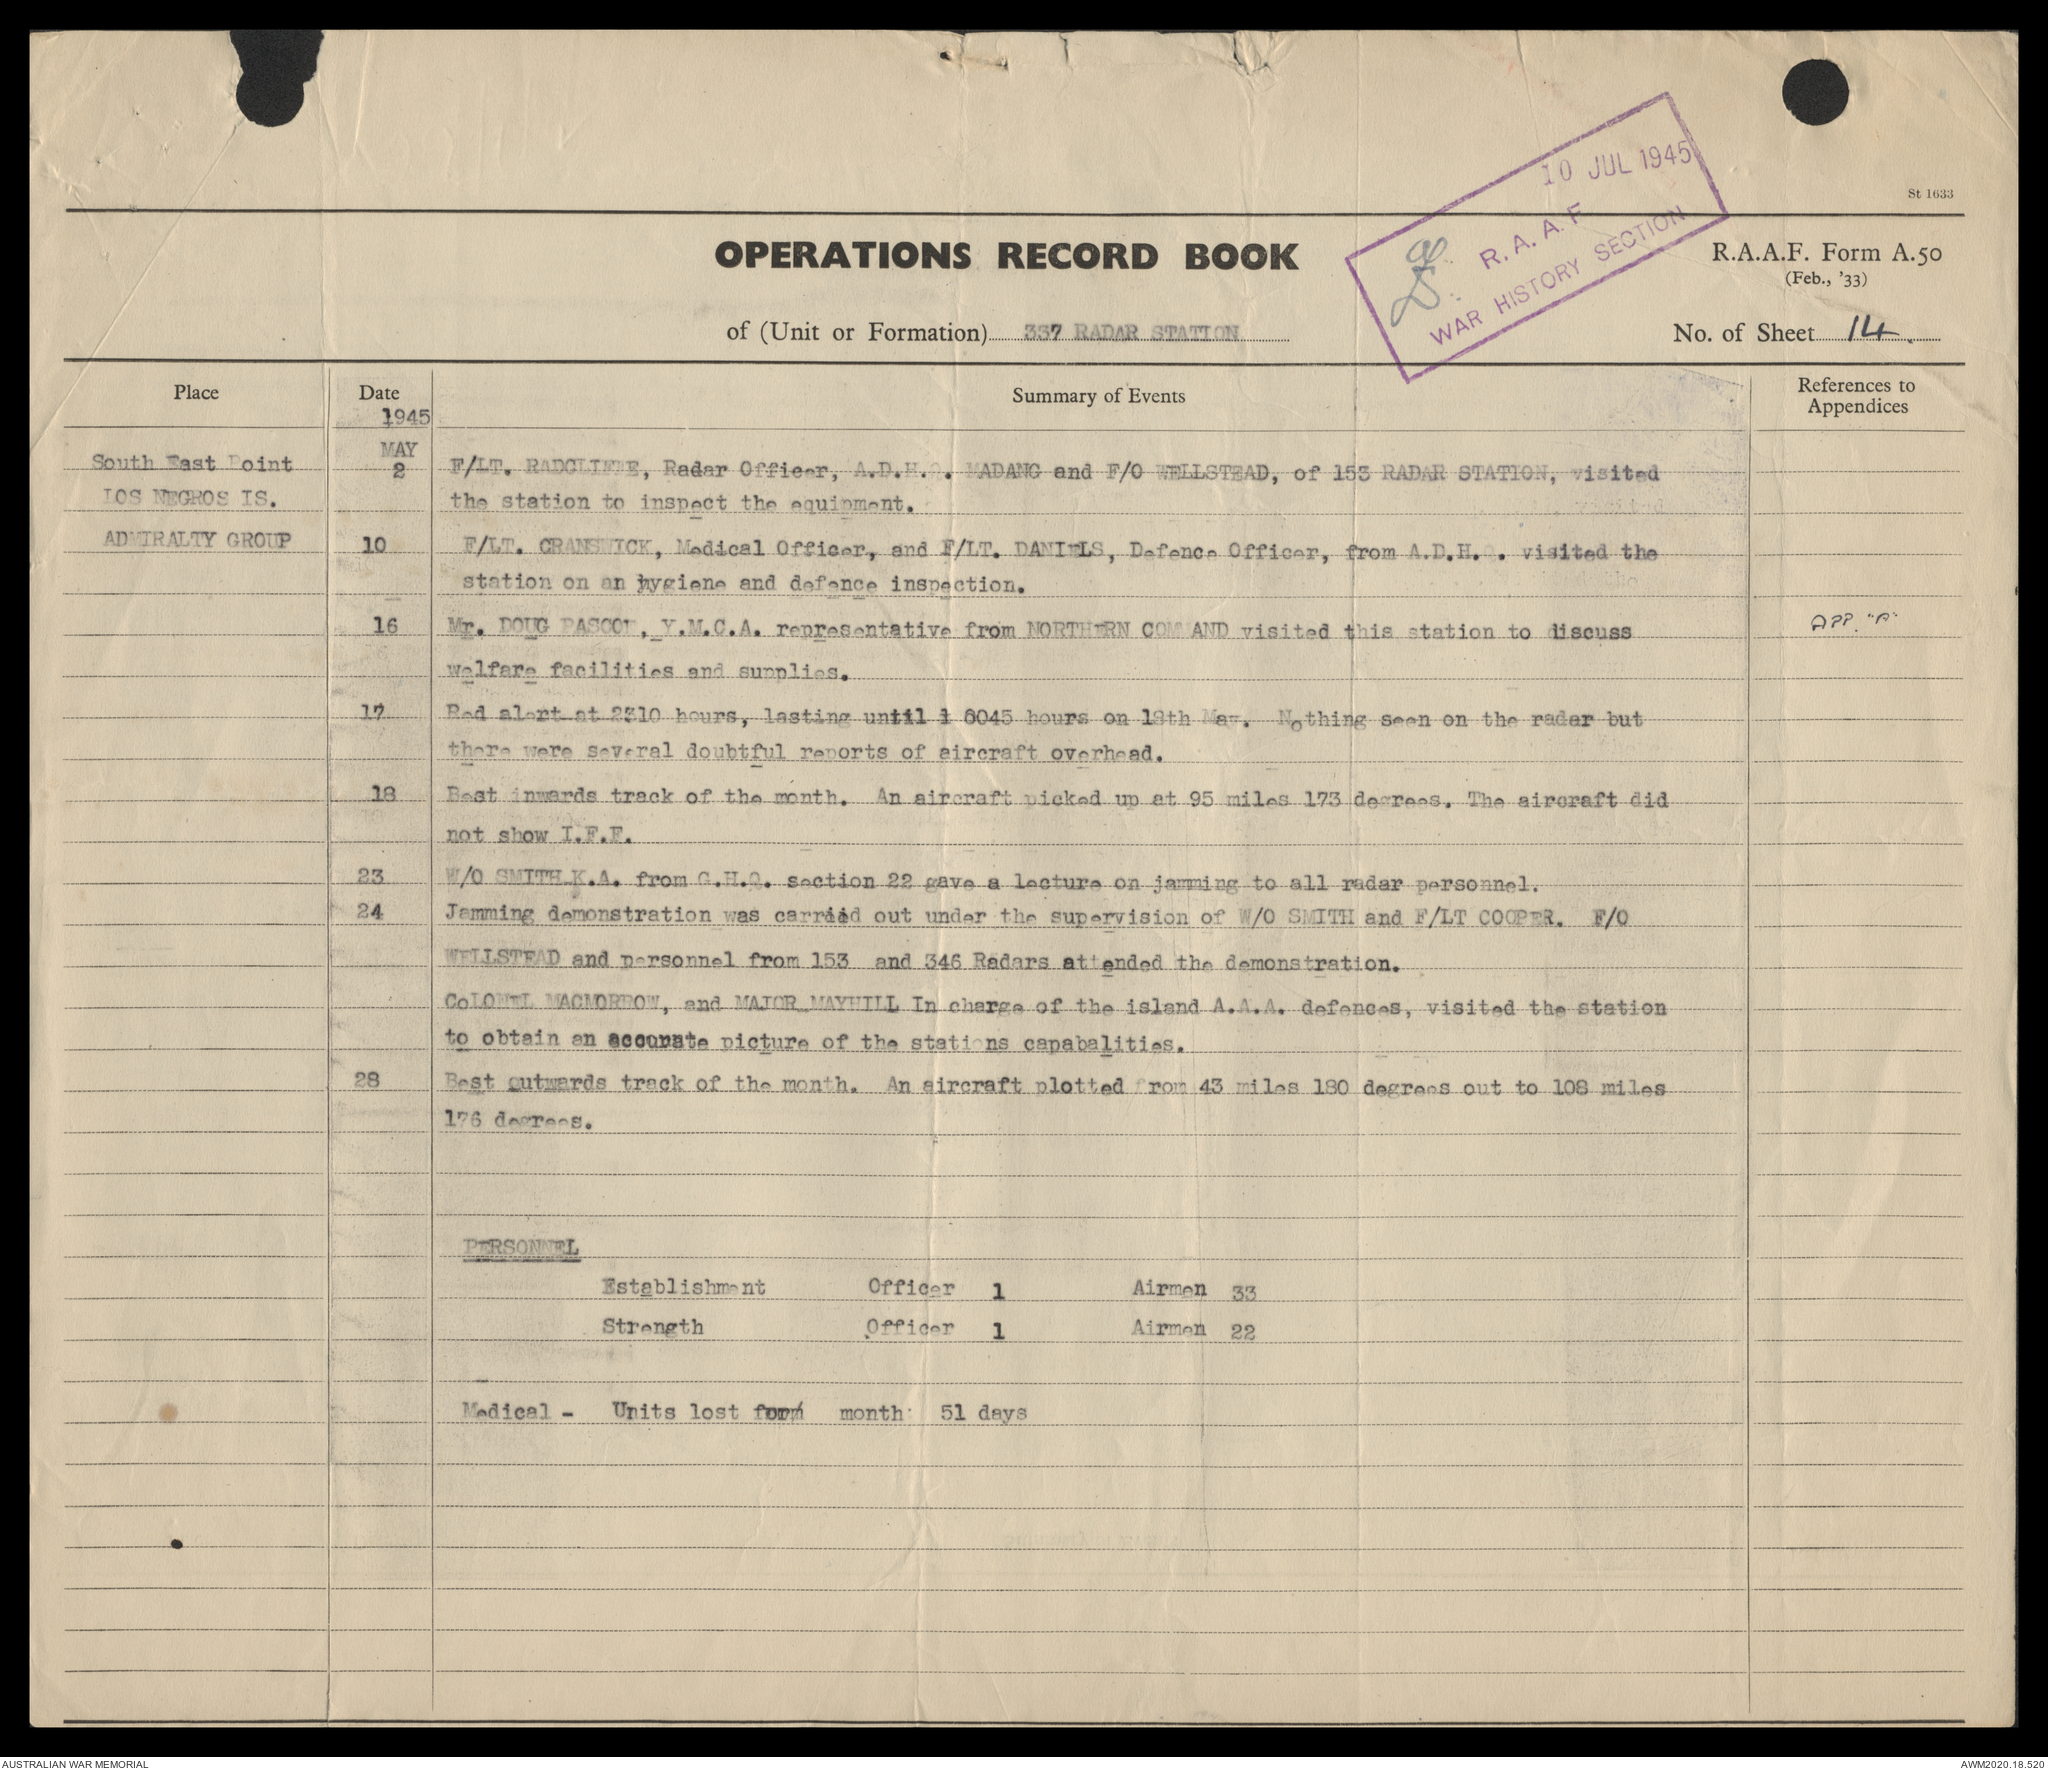 10 JUL 1945
R.A.A.F
WAR HISTORY SECTION
St 1633
OPERATIONS RECORD BOOK
R.A.A.F. Form A.50
(Feb., '33)
of (Unit or Formation) 337 RADAR STATION
No. of Sheet 14.
Place Date Summary of Events References to Appendices
1945
MAY
South East Point 2 F/LT. RADCLIFFE, Radar Officer, A.D.H.Q. MADANG and F/O WELLSTEAD, of 153 RADAR STATION, visited
LOS NEGROS IS. the station to inspect the equipment.
ADMIRALTY GROUP 10 F/LT. CRANSWICK, Medical Officer, and F/LT. DANIELS, Defence Officer, from A.D.H.Q. visited the
station on an hygiene and defence inspection.
16 Mr. DOUG PASCOE, Y.M.C.A. representative from NORTHERN COMMAND visited this station to discuss APP. "A"
welfare facilities and supplies.
17 Red alert at 2310 hours, lasting until 0045 hours on 18th May. Nothing seen on the radar but
there were several doubtful reports of aircraft overhead.
18 Best inwards track of the month. An aircraft picked up at 95 miles 173 degrees. The aircraft did
not show I.F.F.
23 W/O SMITH K.A. from G.H.Q. section 22 gave a lecture on jamming to all radar personnel.
24 Jamming demonstration was carried out under the supervision of W/O SMITH and F/LT COOPER. F/O
WELLSTEAD and personnel from 153 and 346 Radars attended the demonstration.
CoLONEL MACMORROW, and MAJOR MAYHILL In charge of the island A.A.A. defences, visited the station
to obtain an accurate picture of the stations capabalities.
28 Best outwards track of the month. An aircraft plotted from 43 miles 180 degrees out to 108 miles
176 degrees.
PERSONNEL
Establishment Officer 1 Airmen 33
Strength Officer 1 Airmen 22
Medical - Units lost for month: 51 days
AUSTRALIAN WAR MEMORIAL
AWM2020.18.520